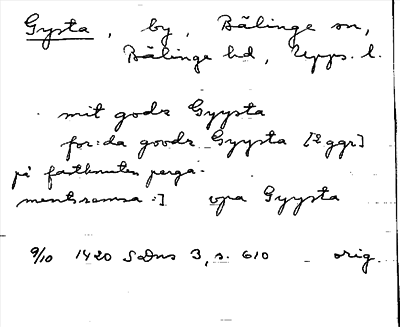 Gysta, by, Bälinge sn,
Bälinge hd, Upps. l.
mit godz Gyysta
for:da goodz Gyysta [2 ggr]
på fasthmuten perga-
mentsremsa:] upa Gyysta
9/10 1420 SDns 3, s. 610 orig.